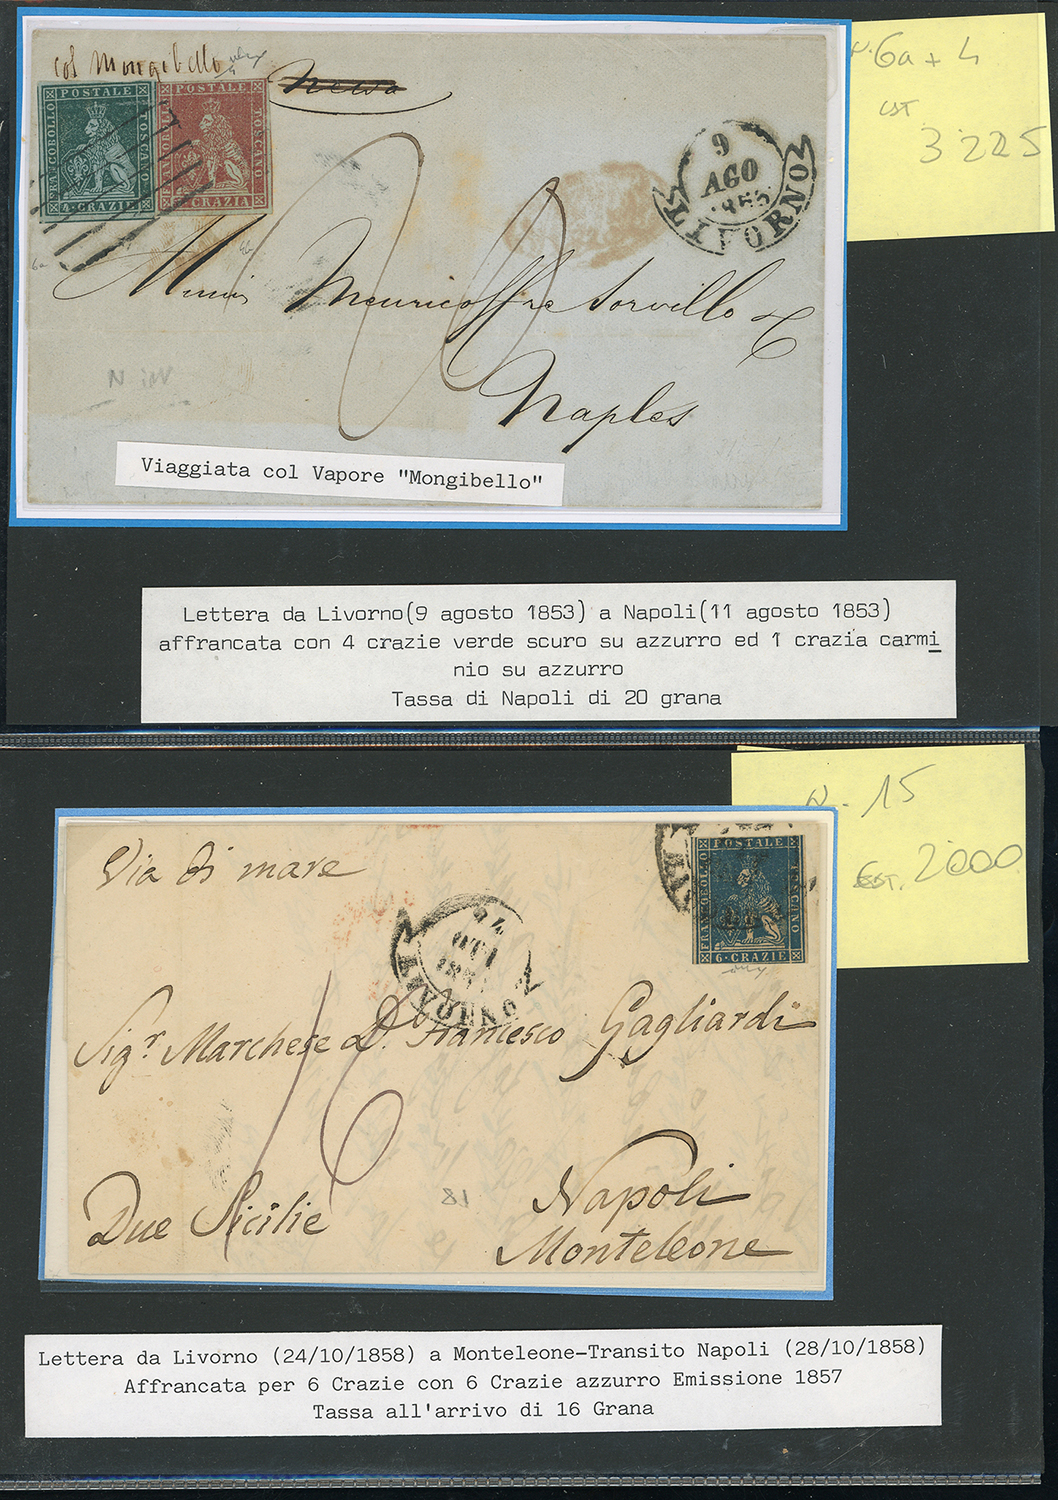 col Mongibello
6a + 4
EST
3225
FRANCOBOLLO POSTALE TOSCANO
4·CRAZIE
FRANCOBOLLO POSTALE TOSCANO
CRAZIA
9
AGO
LIVORNO
Meuricoffre Sorvillo &
Naples
N inv
Viaggiata col Vapore "Mongibello"
Lettera da Livorno(9 agosto 1853) a Napoli(11 agosto 1853)
affrancata con 4 crazie verde scuro su azzurro ed 1 crazia carmi
nio su azzurro
Tassa di Napoli di 20 grana
N. 15
EST. 2000
Via di mare
FRANCOBOLLO POSTALE TOSCANO
6·CRAZIE
24
OTT
Sigr. Marchese D. Francesco Gagliardi
16
Napoli
Due Sicilie
Monteleone
18
Lettera da Livorno (24/10/1858) a Monteleone-Transito Napoli (28/10/1858)
Affrancata per 6 Crazie con 6 Crazie azzurro Emissione 1857
Tassa all'arrivo di 16 Grana